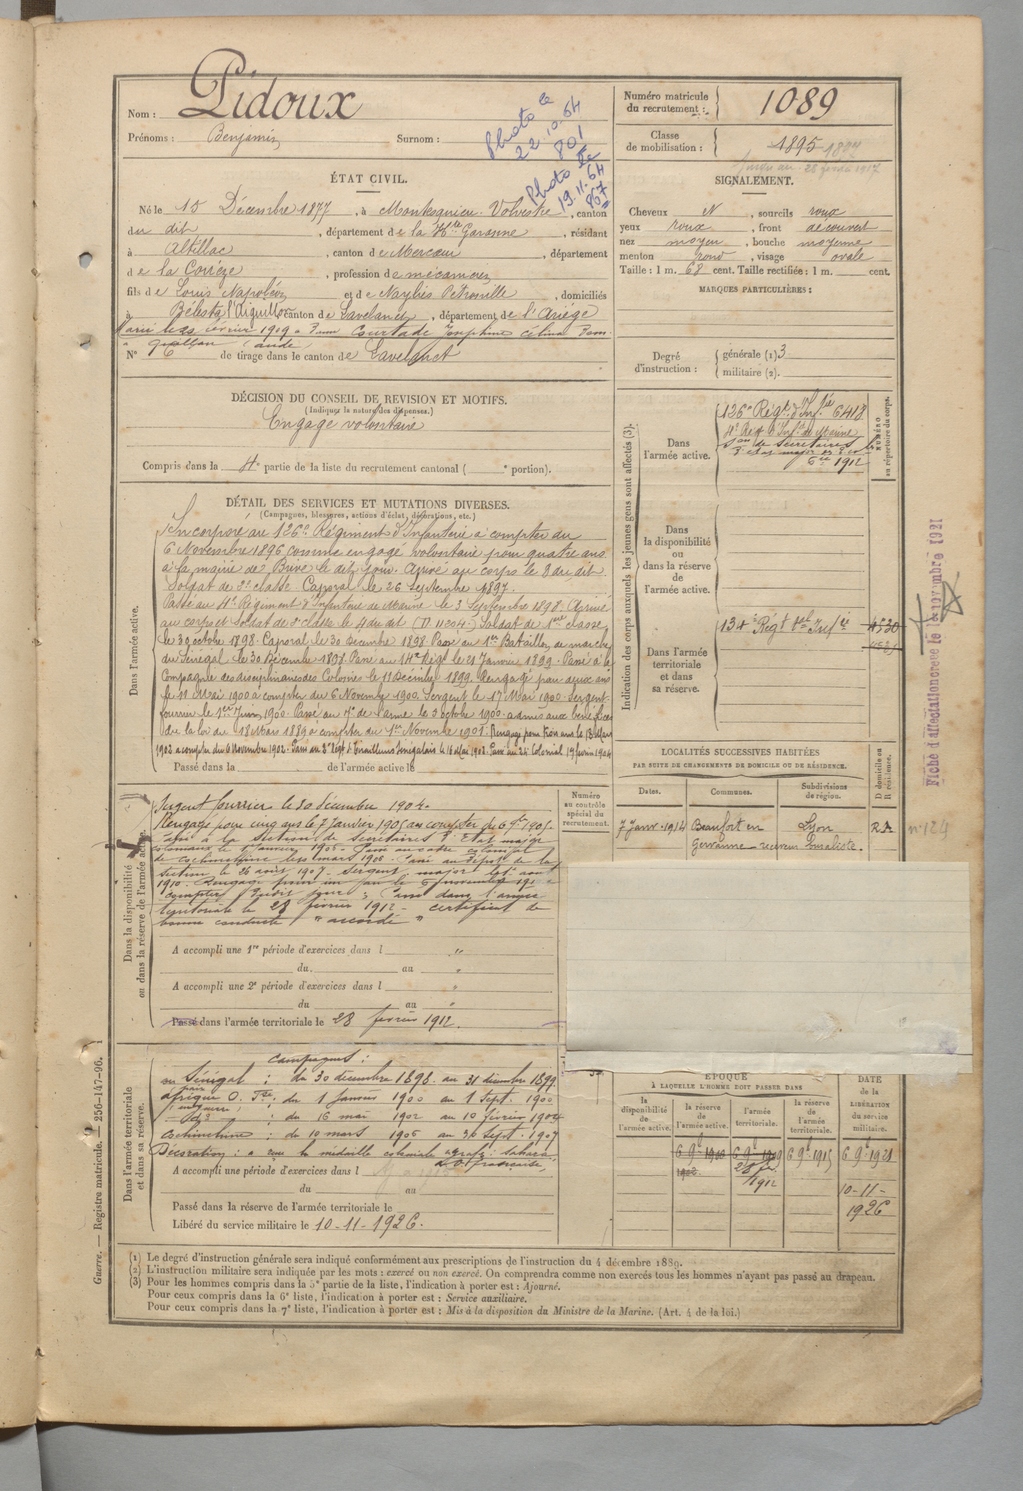 Nom : Pidoux
Prénoms : Benjamin Surnom :
Photo le
22.10.64
801
Photo le
19.11.64
867
Numéro matricule du recrutement : 1089
Classe de mobilisation : 1895 1897
ÉTAT CIVIL.
Né le 15 Décembre 1877, à Montesquieu-Volvestre, canton
du dit, département de la Hte Garonne, résidant
à Altillac, canton de Mercœur, département
de la Corrèze, profession de mécanicien
fils de Louis Napoléon et de Naylies Pétronille, domiciliés
à Bélesta l'Aiguillon canton de Lavelanet, département de l'Ariège
N° 6 de tirage dans le canton de Lavelanet
SIGNALEMENT.
Cheveux N, sourcils roux
yeux roux, front découvert
nez moyen, bouche moyenne
menton rond, visage ovale
Taille : 1 m. 68 cent. Taille rectifiée : 1 m. cent.
MARQUES PARTICULIÈRES :
Degré d'instruction : générale (1) 3
militaire (2).
DÉCISION DU CONSEIL DE REVISION ET MOTIFS.
(Indiquer la nature des dispenses.)
Engagé volontaire
Compris dans la 4e partie de la liste du recrutement cantonal ( e portion).
DÉTAIL DES SERVICES ET MUTATIONS DIVERSES.
(Campagnes, blessures, actions d'éclat, décorations, etc.)
Dans l'armée active.
Incorporé au 126e Régiment d'Infanterie à compter du
6 Novembre 1896 comme engagé volontaire pour quatre ans
à la mairie de Brive le dit jour. Arrivé au corps le 8 du dit
Soldat de 2e classe Caporal le 26 Septembre 1897.
Passé au 4e Régiment d'Infanterie de Marine le 3 Septembre 1898. Arrivé
au corps et Soldat de 2e classe le 4 du dit (N 11004) Soldat de 1ère classe
le 3 octobre 1898. Caporal le 30 Décembre 1898. Passé au 1er Bataillon de marche
du Sénégal le 30 Décembre 1898. Passé au 14e Régt le 21 Janvier 1899. Passé à la
Compagnie des disciplinaires des Colonies le 11 Décembre 1899. Rengagé pour deux ans
le 11 Mai 1900 à compter du 6 Novembre 1900. Sergent le 17 Mai 1900 Sergent
fourrier le 1er Juin 1900. Passé au 7e de l'arme le 3 octobre 1900. admis aux bénéfices
de la loi du 18 Mars 1889 à compter du 1er Novembre 1901. Rengagé pour 3 ans le 13 Mars
1902 à compter du 6 Novembre 1902. Passé au 2e Régt de Tirailleurs Sénégalais le 16 Mai 1902. Passé au 24 Colonial 19 février 1904
Passé dans la de l'armée active le
Dans la disponibilité
ou dans la réserve de l'armée active.
Sergent fourrier le 30 décembre 1904.
Rengagé pour cinq ans le 7 Janvier 1905 au compter du 6 9bre 1905.
section le 26 août 1907. Sergent major le 1er août
1910. Rengagé pour un an le 6 novembre 1910 à
compter dudit jour. Passé dans l'armée
territoriale le 28 février 1912 - certificat de
bonne conduite "accordé"
A accompli une 1re période d'exercices dans l "
du au "
A accompli une 2e période d'exercices dans l "
du au "
Passé dans l'armée territoriale le 28 février 1912.
Dans l'armée territoriale
et dans sa réserve.
Campagnes :
au Sénégal : du 30 décembre 1898 au 31 décembre 1899
Afrique O. Fse : du 1 Janvier 1900 au 1 Sept. 1900
: du 16 mai 1902 au 10 février 1904
Cochinchine : du 10 mars 1906 au 30 Sept. 1907
Décoration : a reçu la médaille coloniale agrafe : Sahara
A. O. française,
A accompli une période d'exercices dans l
du au
Passé dans la réserve de l'armée territoriale le
Libéré du service militaire le 10-11-1926.
Indication des corps auxquels les jeunes gens sont affectés (3).
NUMÉRO au répertoire du corps.
Dans l'armée active.
126e Régt d'Infie 6418
4e Régt d'Infie de Marine
Son de Secrétaires
6 1912
Dans la disponibilité ou dans la réserve de l'armée active.
Dans l'armée territoriale et dans sa réserve.
131e Régt tal Infie
Fiche d'affectation créée le 1er novembre 1921
LOCALITÉS SUCCESSIVES HABITÉES
PAR SUITE DE CHANGEMENTS DE DOMICILE OU DE RÉSIDENCE.
Dates. Communes. Subdivisions de région. D domicile ou R résidence.
7 Janv. 1914 Beaufort en Lyon R. n° 124
Gervanne - receveur buraliste.
Numéro
au contrôle
spécial du
recrutement.
ÉPOQUE
À LAQUELLE L'HOMME DOIT PASSER DANS
DATE
de la
LIBÉRATION
du service
militaire.
la disponibilité de l'armée active. la réserve de l'armée active. l'armée territoriale. la réserve de l'armée territoriale.
6 9bre 1909 6 9bre 1915 6 9bre 1921
28 fév.
1912
10-11-
1926
(1) Le degré d'instruction générale sera indiqué conformément aux prescriptions de l'instruction du 4 décembre 1889.
(2) L'instruction militaire sera indiquée par les mots : exercé ou non exercé. On comprendra comme non exercés tous les hommes n'ayant pas passé au drapeau.
(3) Pour les hommes compris dans la 5e partie de la liste, l'indication à porter est : Ajourné.
Pour ceux compris dans la 6e liste, l'indication à porter est : Service auxiliaire.
Pour ceux compris dans la 7e liste, l'indication à porter est : Mis à la disposition du Ministre de la Marine. (Art. 4 de la loi.)
Guerre. — Registre matricule. — 256-147-96.